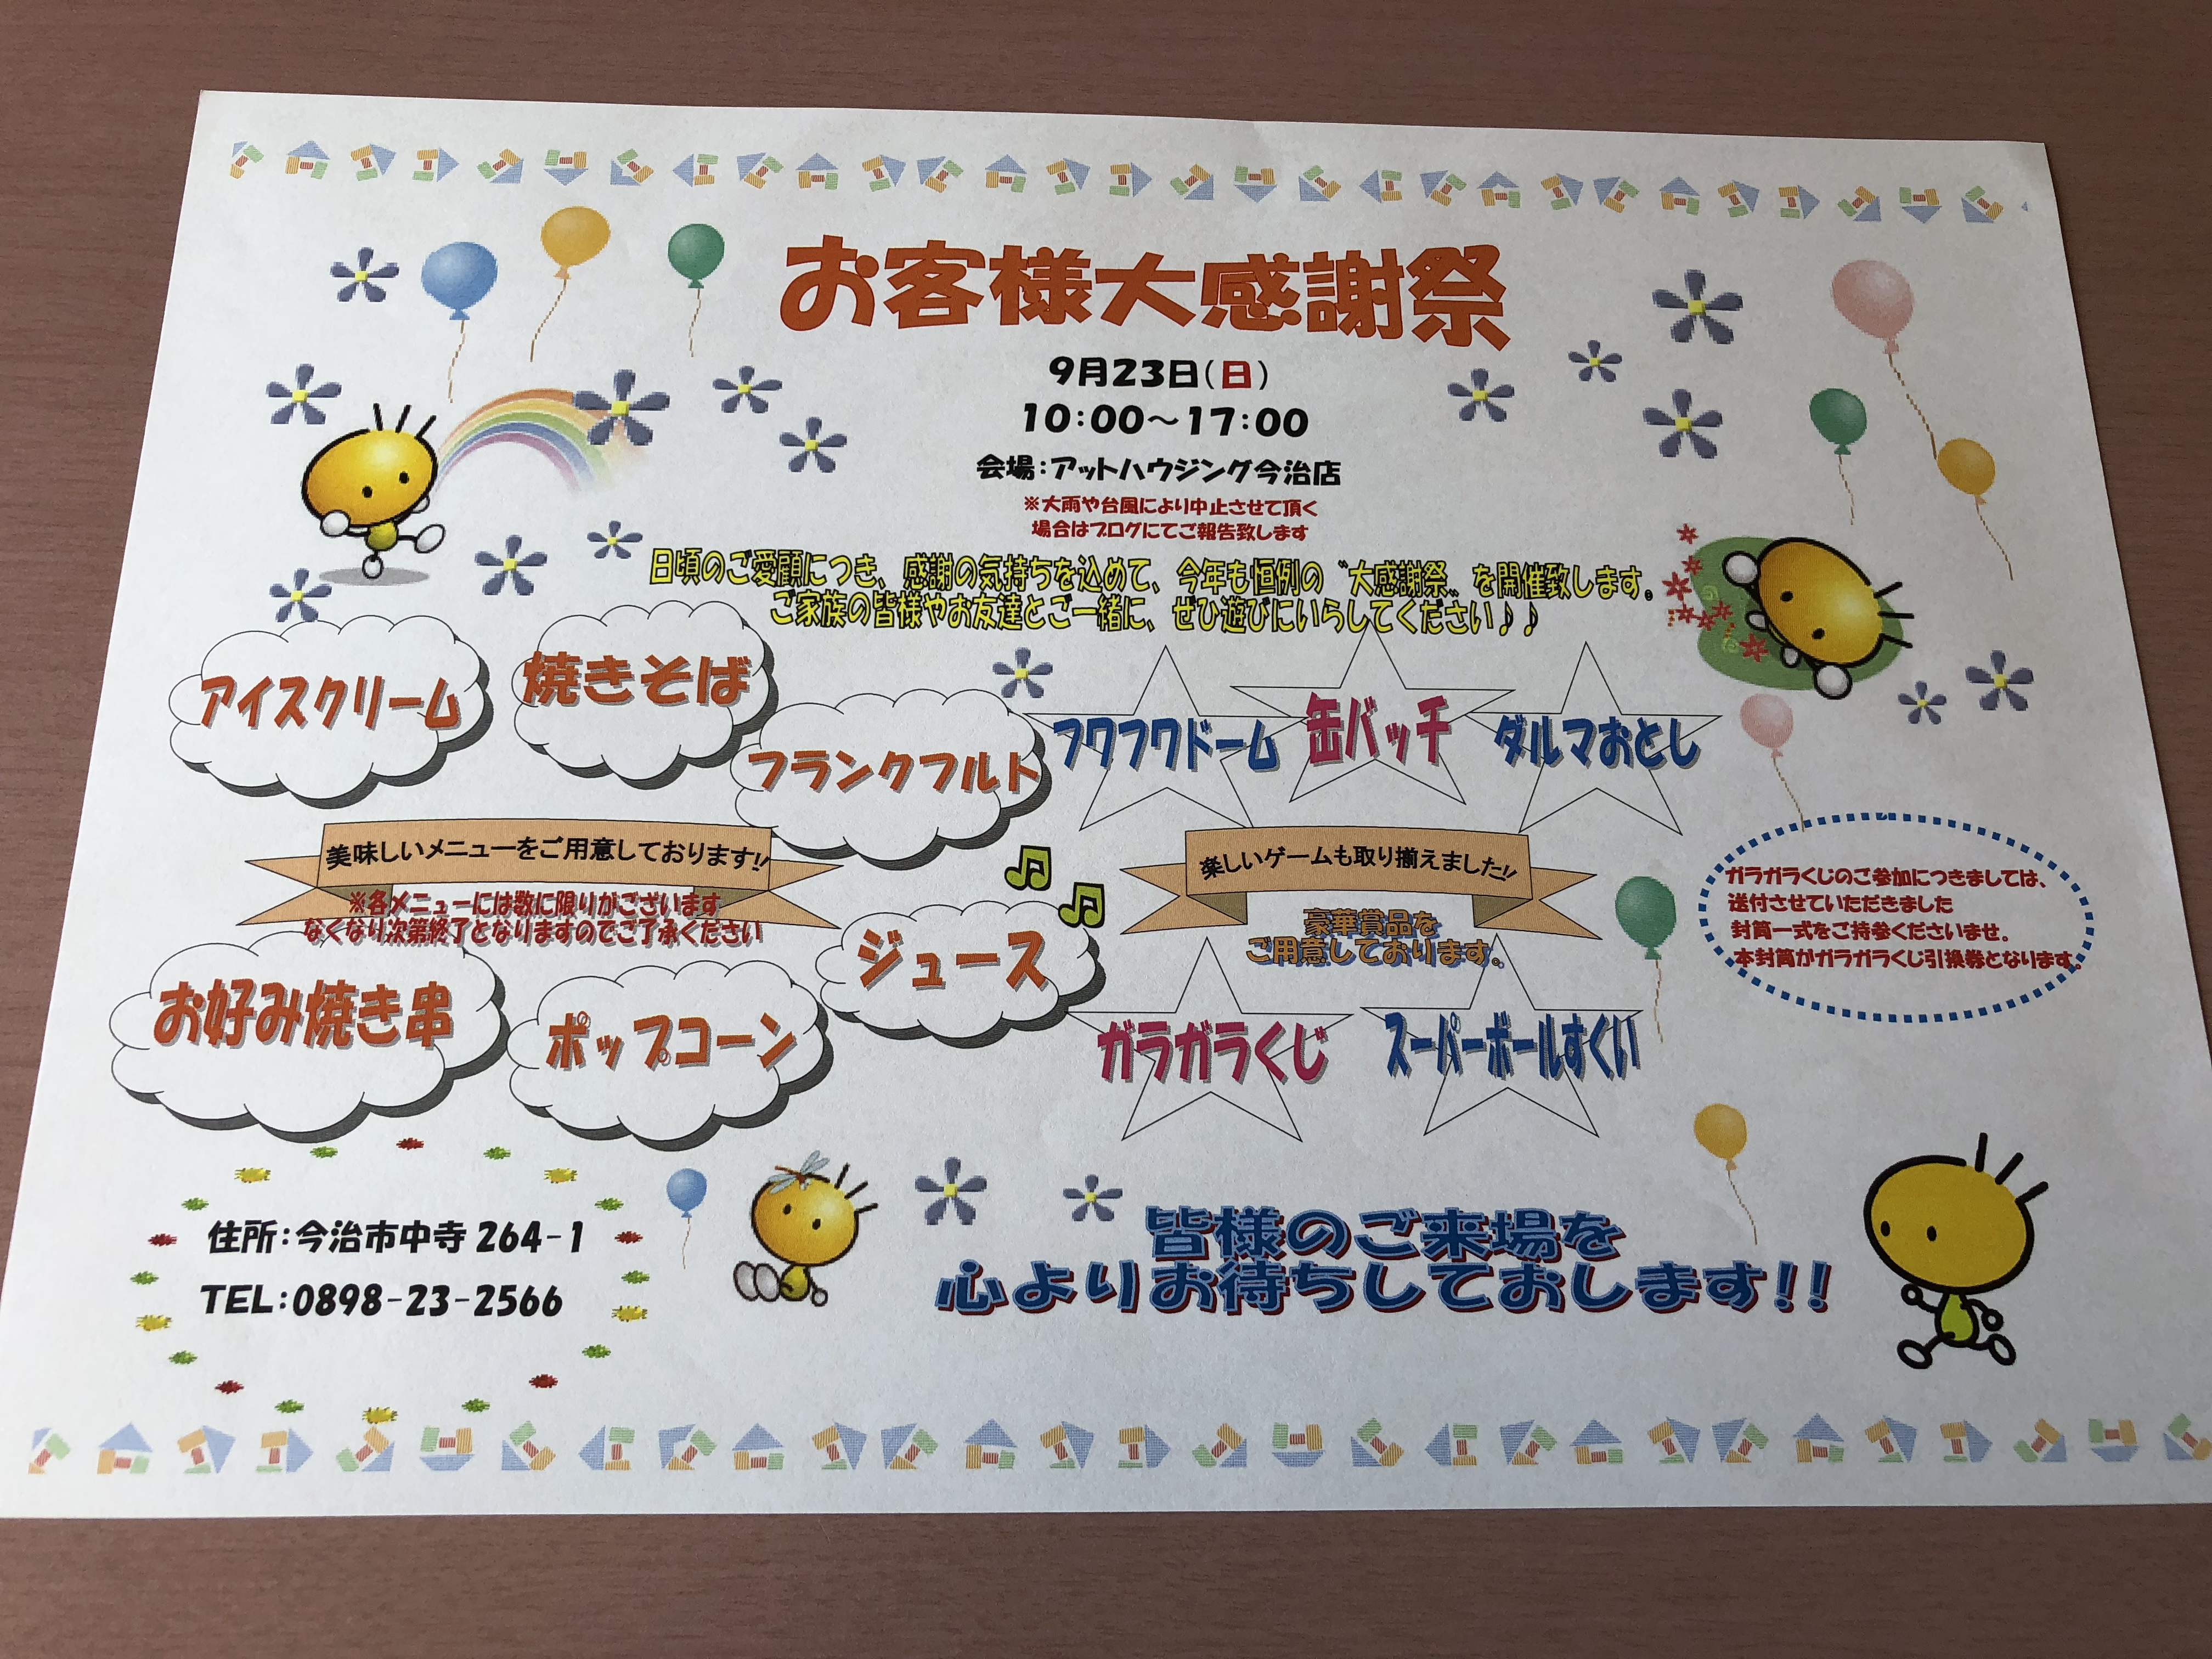 お客様大感謝祭
9月23日(日)
10:00～17:00
会場:アットハウジング今治店
※大雨や台風により中止させて頂く
場合はブログにてご報告致します
日頃のご愛顧につき、感謝の気持ちを込めて、今年も恒例の〝大感謝祭〟を開催致します。
ご家族の皆様やお友達とご一緒に、ぜひ遊びにいらしてください♪♪
アイスクリーム
焼きそば
フランクフルト
美味しいメニューをご用意しております!!
※各メニューには数に限りがございます
なくなり次第終了となりますのでご了承ください
お好み焼き串
ポップコーン
ジュース
フワフワドーム
缶バッチ
ダルマおとし
楽しいゲームも取り揃えました!!
豪華賞品を
ご用意しております。
ガラガラくじ
スーパーボールすくい
ガラガラくじのご参加につきましては、
送付させていただきました
封筒一式をご持参くださいませ。
本封筒がガラガラくじ引換券となります。
住所:今治市中寺264-1
TEL:0898-23-2566
皆様のご来場を
心よりお待ちしておします!!